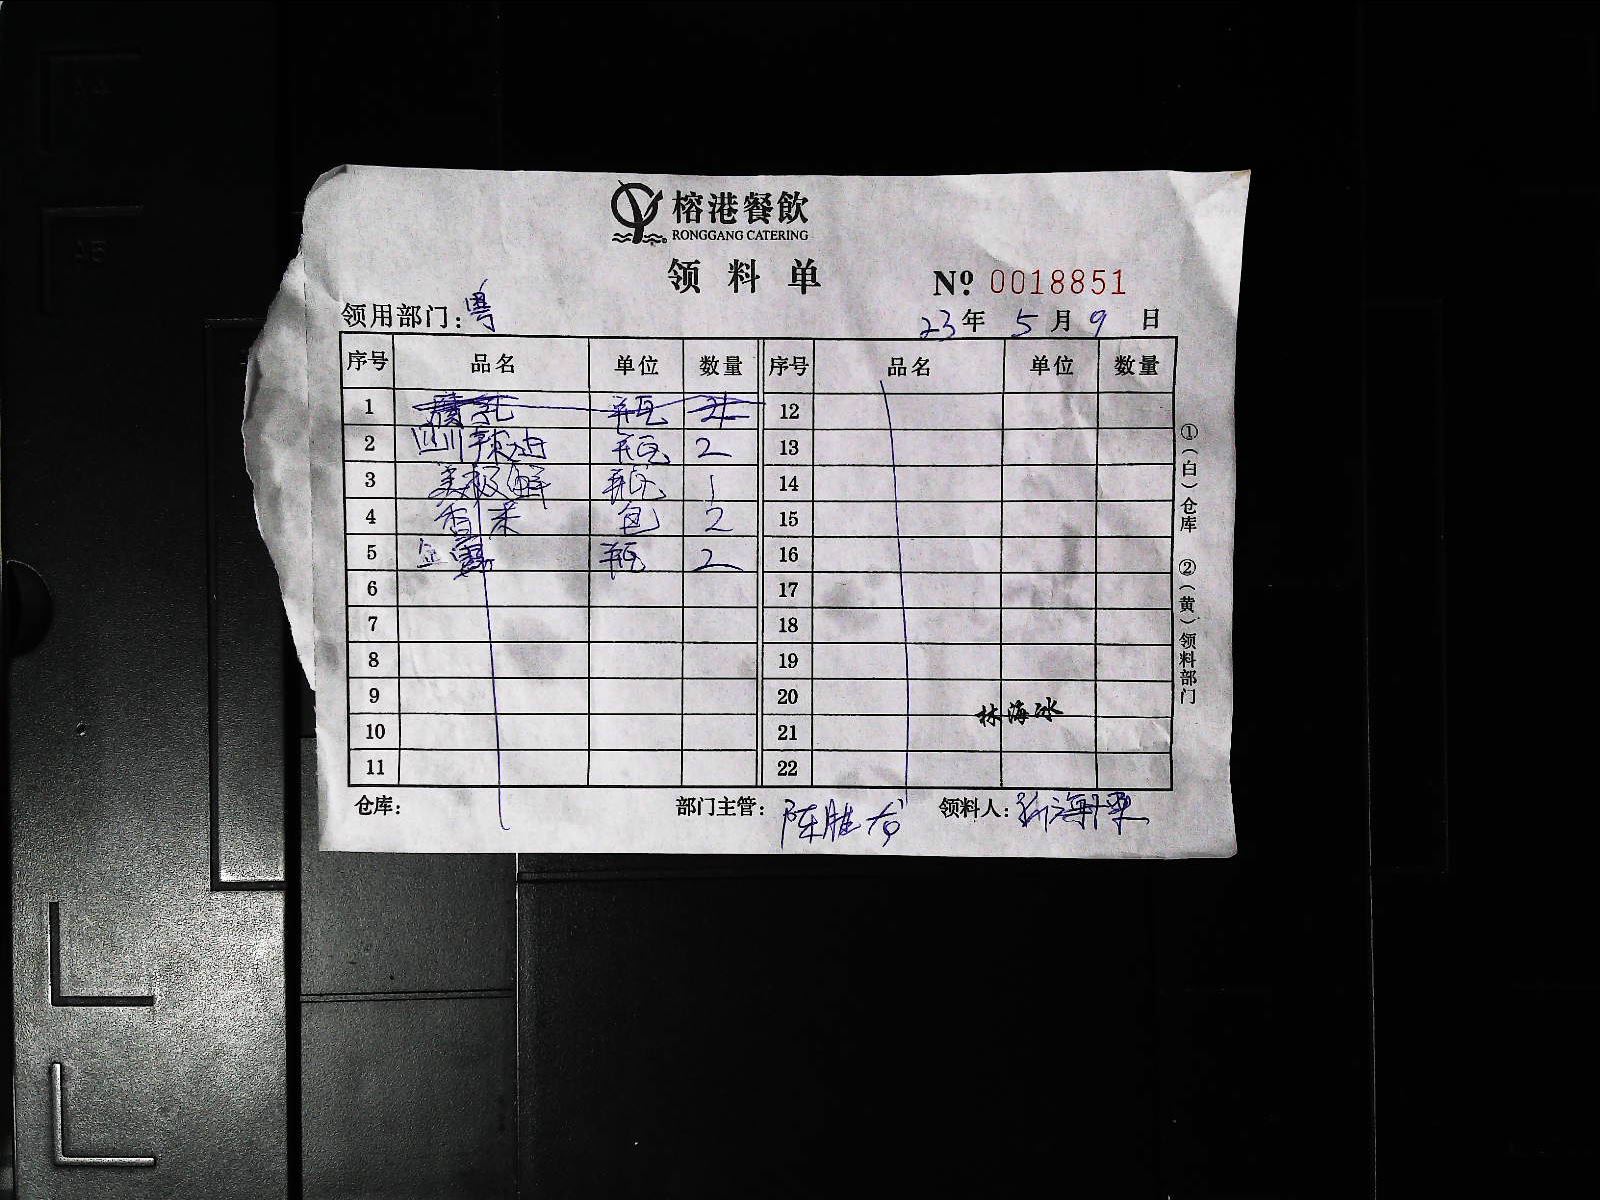 榕港餐飲
RONGGANG CATERING
领料单
Nº 0018851
领用部门: 粤
23年 5月 9日
序号 品名 单位 数量 序号 品名 单位 数量
1 腐乳 瓶 2 12
2 四川辣油 瓶 2 13
3 美极鲜 瓶 1 14
4 香米 包 2 15
5 瓶 2 16
6 17
7 18
8 19
9 20
林海冰
10 21
11 22
仓库: 部门主管: 陈胜 领料人:
①(白)仓库 ②(黄)领料部门